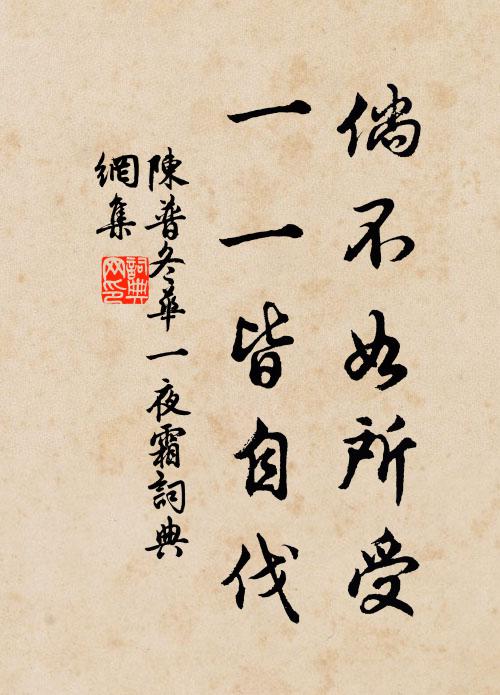 倘不如所受
一一皆自伐
陳普冬華一夜霜詞典
網集
詞典網印